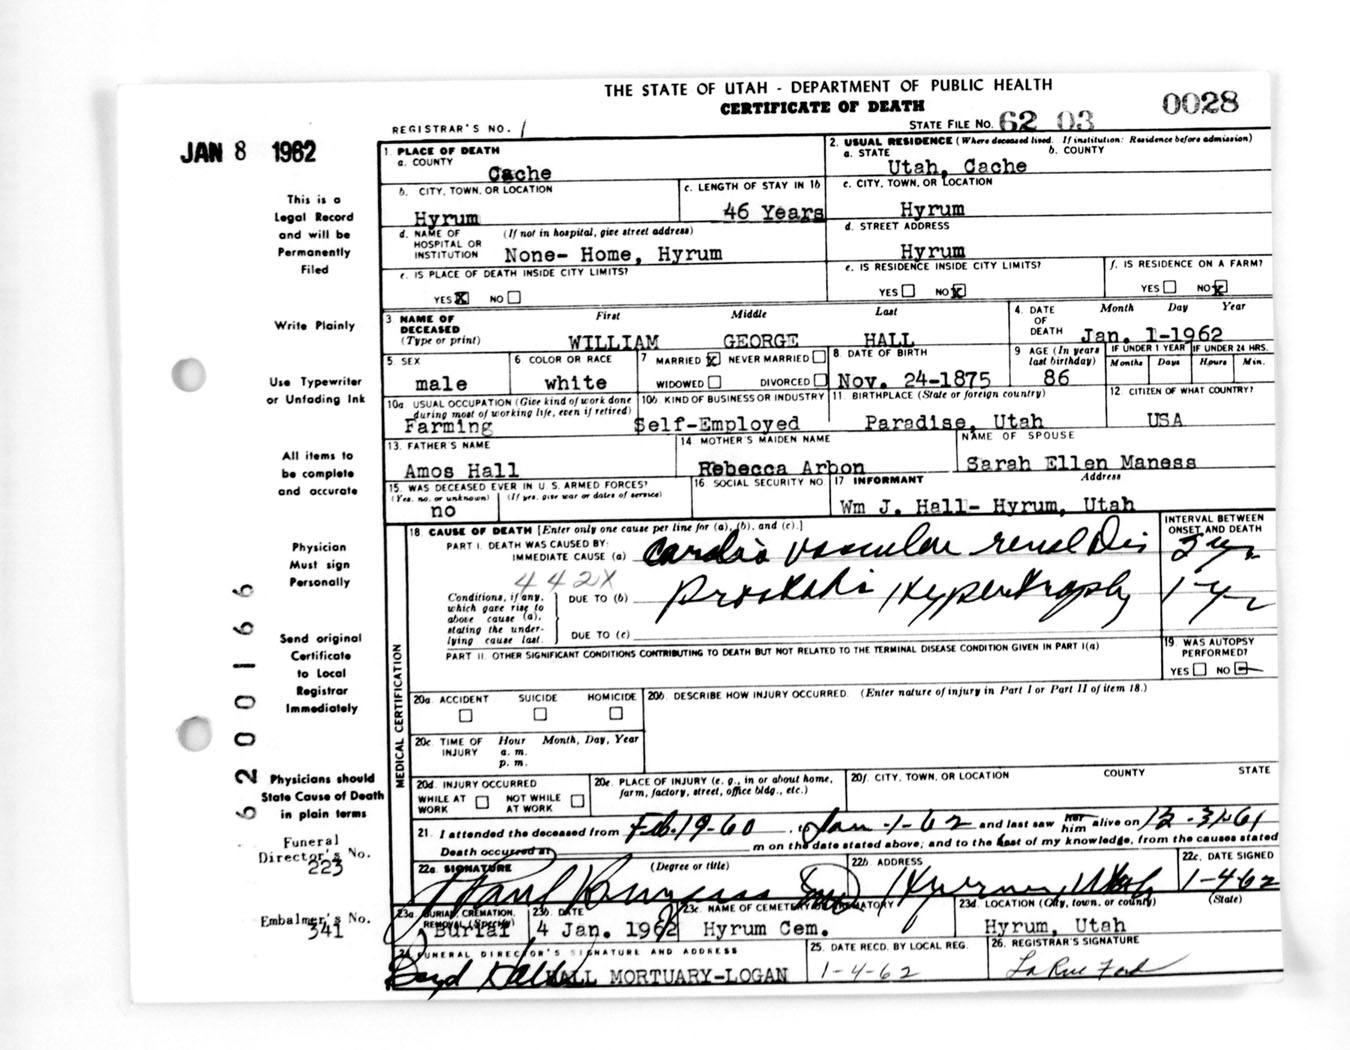 THE STATE OF UTAH - DEPARTMENT OF PUBLIC HEALTH
CERTIFICATE OF DEATH
0028
REGISTRAR'S NO. 1
STATE FILE NO. 62 03
JAN 8 1962
This is a
Legal Record
and will be
Permanently
Filed
Write Plainly
Use Typewriter
or Unfading Ink
All items to
be complete
and accurate
Physician
Must sign
Personally
Send original
Certificate
to Local
Registrar
Immediately
Physicians should
State Cause of Death
in plain terms
Funeral
Director's No.
223
Embalmer's No.
341
62 00166
1. PLACE OF DEATH
a. COUNTY
Cache
2. USUAL RESIDENCE (Where deceased lived. If institution: Residence before admission)
a. STATE b. COUNTY
Utah, Cache
b. CITY, TOWN, OR LOCATION
Hyrum
c. LENGTH OF STAY IN 1b
46 Years
c. CITY, TOWN, OR LOCATION
Hyrum
d. NAME OF HOSPITAL OR INSTITUTION (If not in hospital, give street address)
None- Home, Hyrum
d. STREET ADDRESS
Hyrum
e. IS PLACE OF DEATH INSIDE CITY LIMITS?
YES X NO
e. IS RESIDENCE INSIDE CITY LIMITS?
YES NO X
f. IS RESIDENCE ON A FARM?
YES NO X
3 NAME OF DECEASED (Type or print) First Middle Last
WILLIAM GEORGE HALL
4. DATE OF DEATH Month Day Year
Jan. 1-1962
5 SEX
male
6 COLOR OR RACE
white
7 MARRIED X NEVER MARRIED
WIDOWED DIVORCED
8. DATE OF BIRTH
Nov. 24-1875
9 AGE (In years last birthday)
86
IF UNDER 1 YEAR IF UNDER 24 HRS.
Months Days Hours Min.
10a. USUAL OCCUPATION (Give kind of work done during most of working life, even if retired)
Farming
10b. KIND OF BUSINESS OR INDUSTRY
Self-Employed
11. BIRTHPLACE (State or foreign country)
Paradise, Utah
12 CITIZEN OF WHAT COUNTRY?
USA
13. FATHER'S NAME
Amos Hall
14 MOTHER'S MAIDEN NAME
Rebecca Arbon
NAME OF SPOUSE
Sarah Ellen Maness
15. WAS DECEASED EVER IN U. S. ARMED FORCES?
(Yes, no, or unknown) (If yes, give war or dates of service)
no
16 SOCIAL SECURITY NO.
17 INFORMANT Address
Wm J. Hall- Hyrum, Utah
MEDICAL CERTIFICATION
18. CAUSE OF DEATH [Enter only one cause per line for (a), (b), and (c).]
PART I. DEATH WAS CAUSED BY:
IMMEDIATE CAUSE (a) Cardio vascular renal Dis
INTERVAL BETWEEN ONSET AND DEATH
442X
Conditions, if any, which gave rise to above cause (a), stating the underlying cause last.
DUE TO (b) Prostatic Hypertrophy
DUE TO (c)
PART II. OTHER SIGNIFICANT CONDITIONS CONTRIBUTING TO DEATH BUT NOT RELATED TO THE TERMINAL DISEASE CONDITION GIVEN IN PART I(a)
19. WAS AUTOPSY PERFORMED?
YES NO
20a. ACCIDENT SUICIDE HOMICIDE
20b. DESCRIBE HOW INJURY OCCURRED. (Enter nature of injury in Part I or Part II of item 18.)
20c TIME OF INJURY Hour Month, Day, Year
a. m.
p. m.
20d. INJURY OCCURRED
WHILE AT WORK NOT WHILE AT WORK
20e. PLACE OF INJURY (e. g., in or about home, farm, factory, street, office bldg., etc.)
20f. CITY, TOWN, OR LOCATION COUNTY STATE
21. I attended the deceased from Feb. 19-60, to Jan-1-62 and last saw her him alive on 12-31-61
Death occurred at m on the date stated above; and to the best of my knowledge, from the causes stated
22a. SIGNATURE (Degree or title)
22b. ADDRESS
Hyrum, Utah
22c. DATE SIGNED
1-4-62
23a. BURIAL, CREMATION, REMOVAL (Specify)
Burial
23b. DATE
4 Jan. 1962
23c. NAME OF CEMETERY OR CREMATORY
Hyrum Cem.
23d. LOCATION (City, town, or county) (State)
Hyrum, Utah
24. FUNERAL DIRECTOR'S SIGNATURE AND ADDRESS
HALL MORTUARY-LOGAN
25. DATE RECD. BY LOCAL REG.
1-4-62
26. REGISTRAR'S SIGNATURE
LaRue